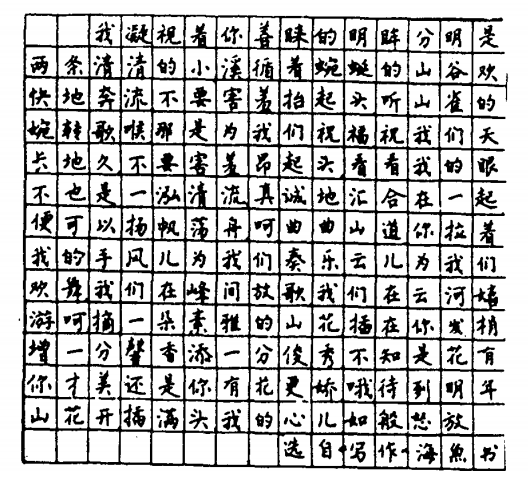 我凝视着你善睐的明眸分明是
两条清清的小溪循着蜿蜒的山谷欢
快地奔流不要害羞抬起头听山雀的
婉转歌喉那是为我们祝福祝我们天
长地久不要害羞昂起头看看我的眼
不也是一泓清流真诚地汇合在一起
便可以扬帆荡舟呵曲曲山道你拉着
我的手风儿为我们奏乐云儿为我们
欢舞我们在峰间放歌我们在云河嬉
游呵摘一朵素雅的山花插在你发梢
增一分馨香添一分俊秀不知是花有
你才美还是你有花更娇哦待到明年
山花开插满头我的心儿如般怒放
选自·写作·海魚书